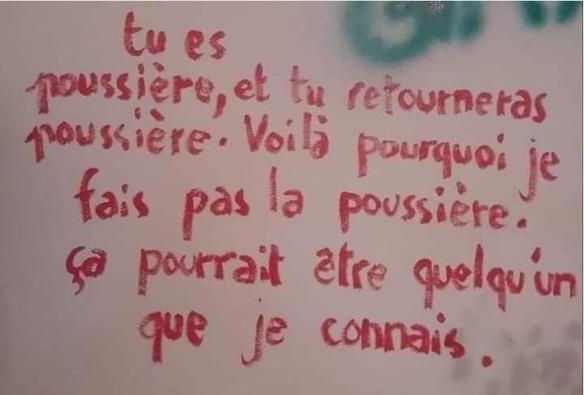 tu es
poussière, et tu retourneras
poussière. Voilà pourquoi je
fais pas la poussière.
ça pourrait être quelqu'un
que je connais.